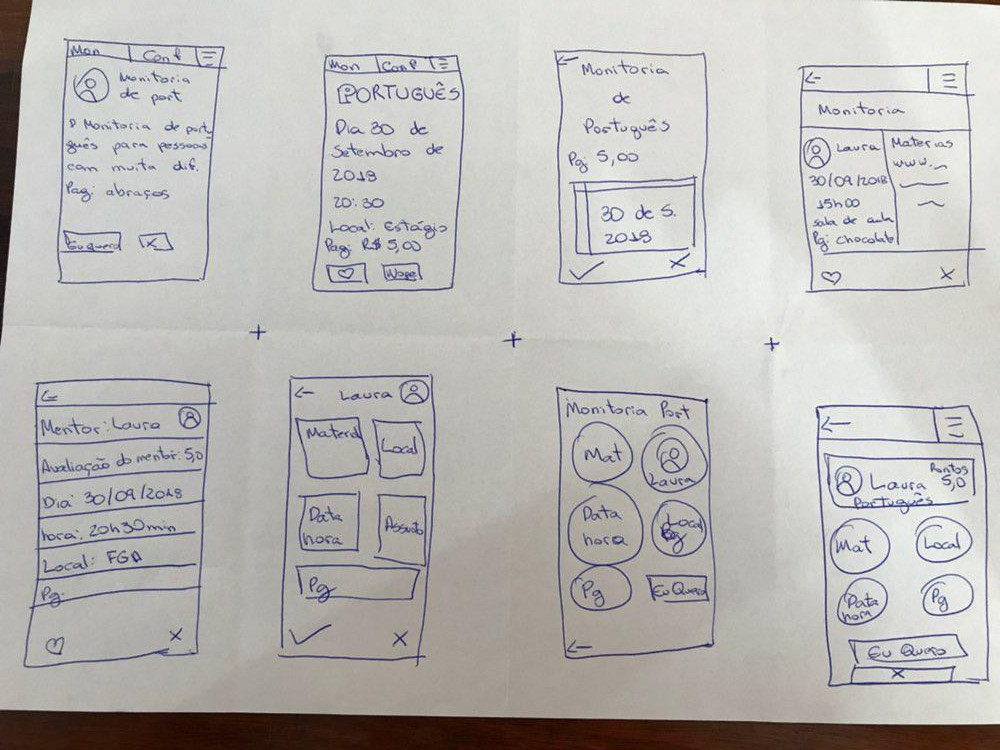 Mon Conf
Monitoria
de port
P Monitoria de portu
guês para pessoas
com muita dif.
Pag: abraços
Eu quero X
Mon Conf
PORTUGUÊS
Dia 30 de
Setembro de
2018
20:30
Local: Estágio
Pag: R$ 5,00
Monitoria
de
Português
Pg: 5,00
30 de S.
2018
X
Monitoria
Laura
30/09/2018
15h00
sala de aula
Pg: chocolate
Materias
www.
X
Mentor: Laura
Avaliação do mentor: 5,0
Dia: 30/09/2018
hora: 20h30min
Local: FGA
Pg:
X
Laura
Material Local
Data
hora
Assunto
Pg
X
Monitoria Port
Mat
Laura
Data
hora
Local
Pg
Eu Quero
Laura Pontos
5,0
Português
Mat Local
Data
hora
Pg
Eu Quero
X